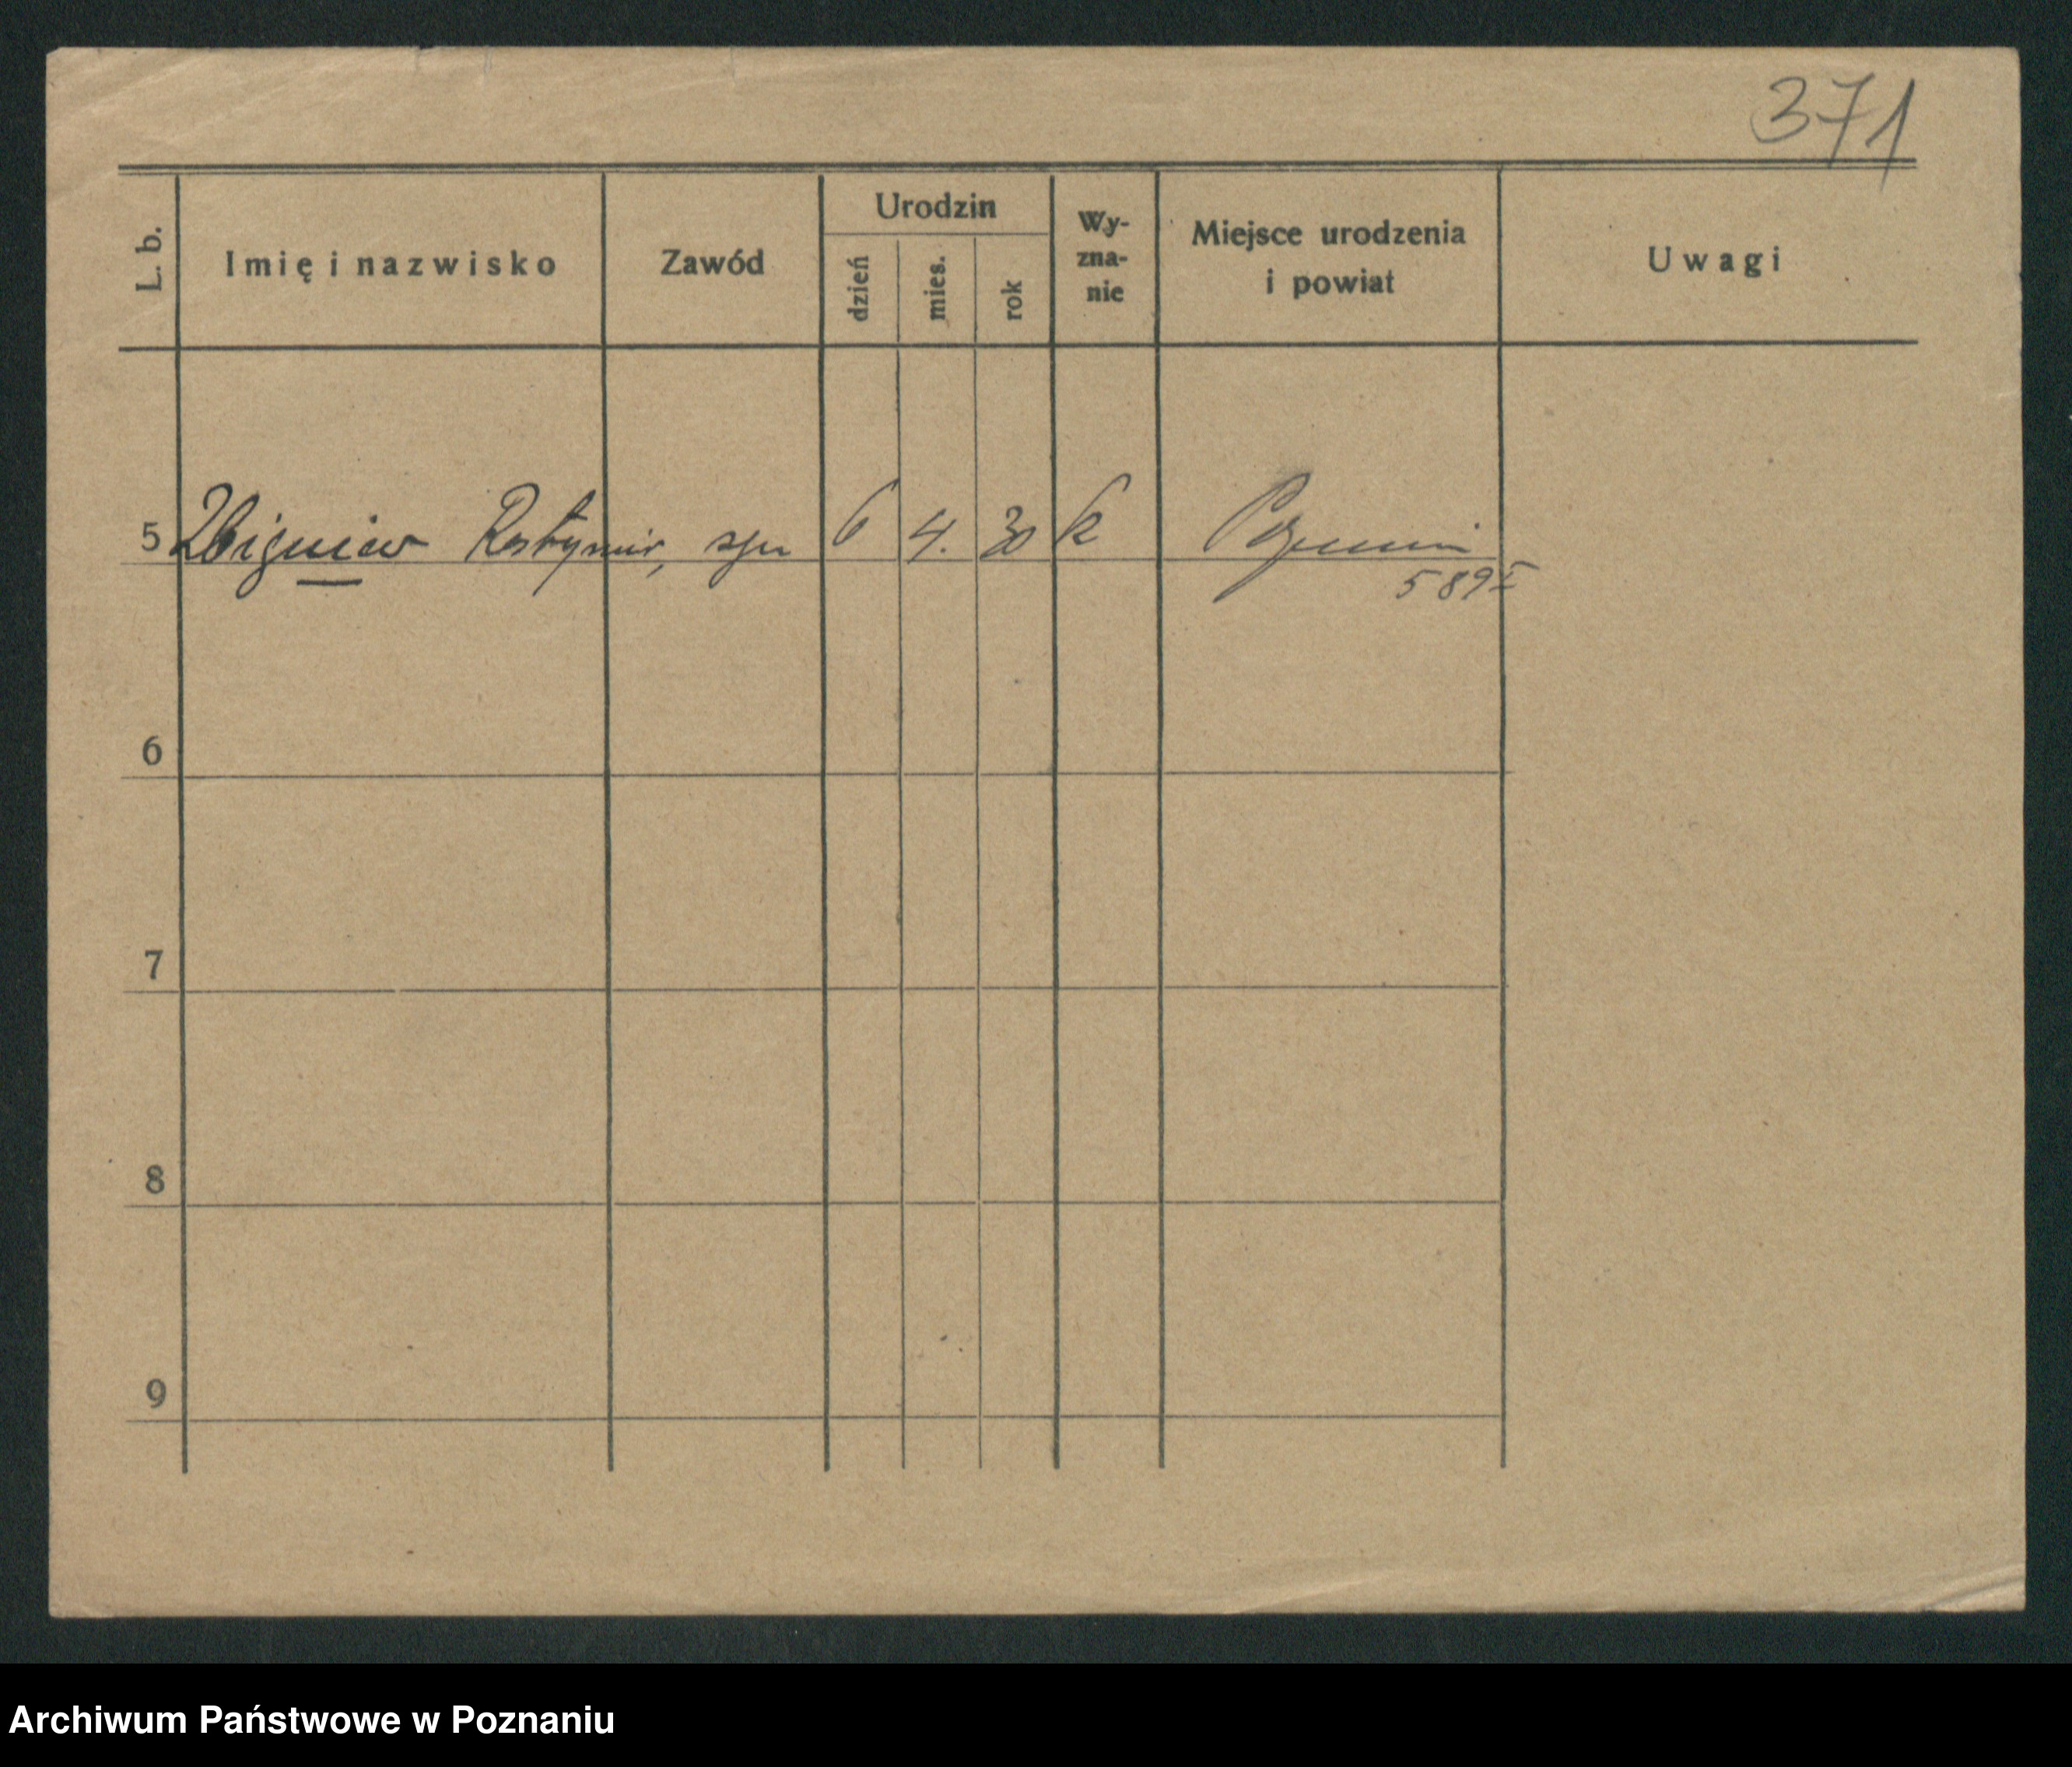 371
L. b.
Imię i nazwisko
Zawód
Urodzin
dzień
mies.
rok
Wy-
zna-
nie
Miejsce urodzenia
i powiat
Uwagi
5 Zbigniew syn 6 4. 30 k
589 I
6
7
8
9
Archiwum Państwowe w Poznaniu